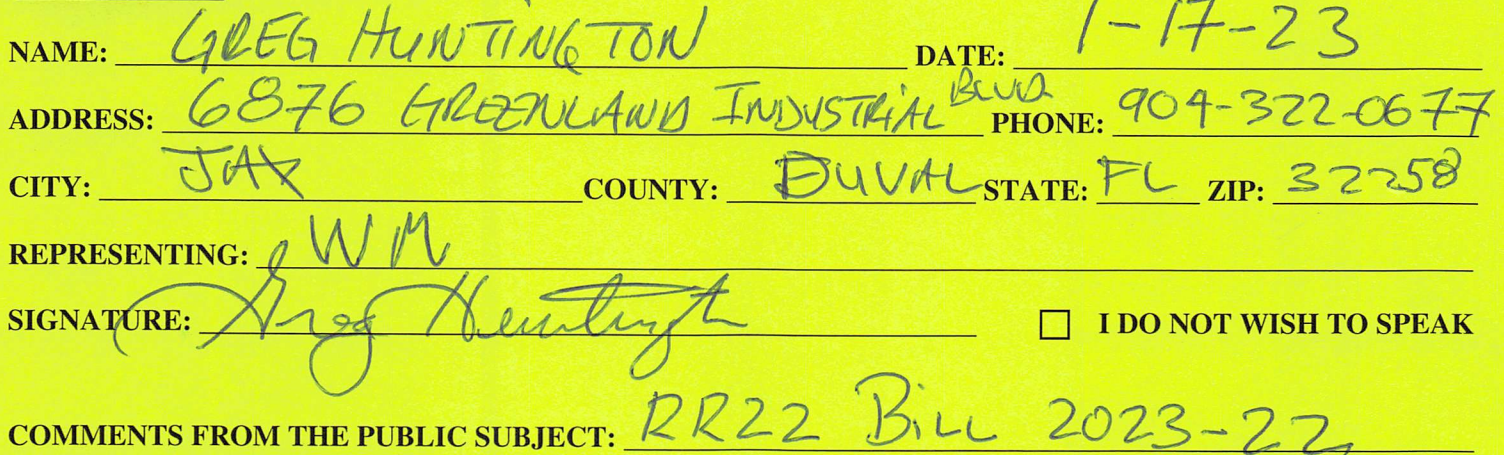 NAME: GREG HUNTINGTON DATE: 1-17-23
ADDRESS: 6876 GREENLAND INDUSTRIAL BLVD PHONE: 904-322-0677
CITY: JAX COUNTY: DUVAL STATE: FL ZIP: 32258
REPRESENTING: WM
SIGNATURE: Greg Huntington ☐ I DO NOT WISH TO SPEAK
COMMENTS FROM THE PUBLIC SUBJECT: RR22 BILL 2023-22